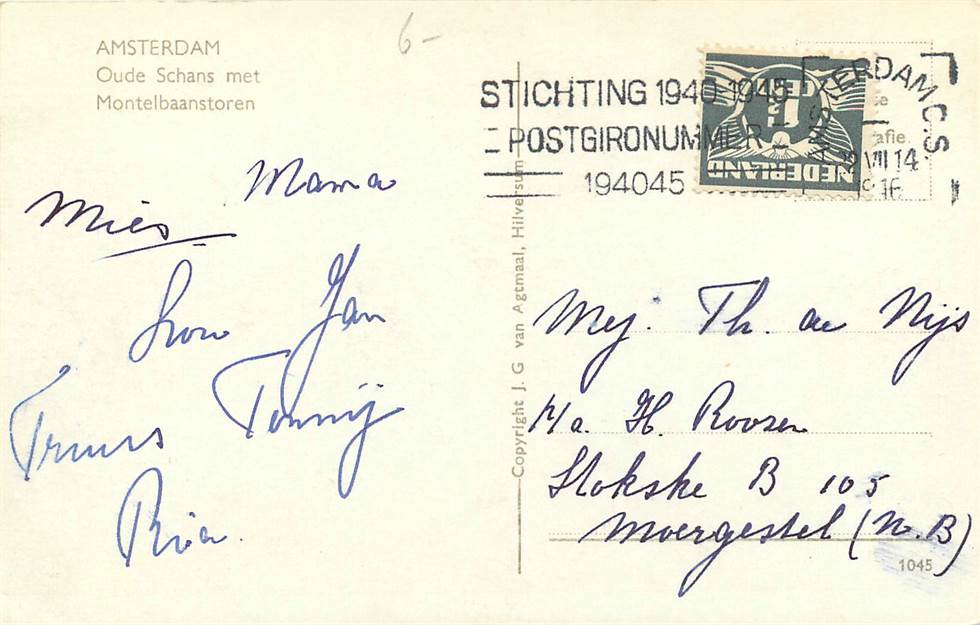 6-
AMSTERDAM
Oude Schans met
Montelbaanstoren
STICHTING 1940-1945
POSTGIRONUMMER
194045
AMSTERDAM C.S
VII 14
NEDERLAND
Mama
Mies
Jan
Truus Tonnij
Ria.
Copyright J. G van Agtmaal, Hilversum
Mej. Th. de Nijs
p/a. H. Roosen
Stokske B 105
Moergestel (N.B)
1045